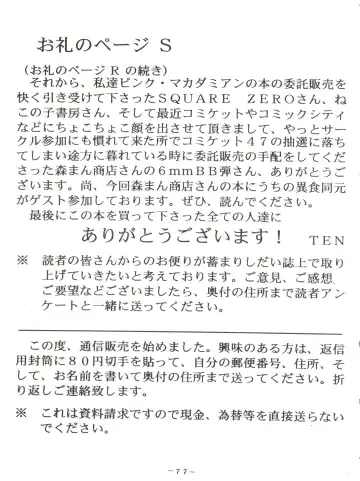 お礼のページ S
(お礼のページRの続き)
それから、私達ピンク・マカダミアンの本の委託販売を
快く引き受けて下さったSQUARE ZEROさん、ねこ
の子書房さん、そして最近コミケットやコミックシティ
などにちょこちょこ顔を出させて頂きまして、やっとサー
クル参加にも慣れて来た所でコミケット47の抽選に落ち
てしまい途方に暮れている時に委託販売の手配をしてくだ
さった森まん商店さんの6mmBB弾さん、ありがとうご
ざいます。尚、今回森まん商店さんの本にうちの異食同元
がゲスト参加しております。ぜひ、読んでください。
最後にこの本を買って下さった全ての人達に
ありがとうございます! TEN
※ 読者の皆さんからのお便りが蓄まりしだい誌上で取り
上げていきたいと考えております。ご意見、ご感想、
ご要望などございましたら、奥付の住所まで読者アン
ケートと一緒に送ってください。
この度、通信販売を始めました。興味のある方は、返信
用封筒に80円切手を貼って、自分の郵便番号、住所、そ
して、お名前を書いて奥付の住所まで送ってください。折
り返しご連絡致します。
※ これは資料請求ですので現金、為替等を直接送らない
でください。
-77-